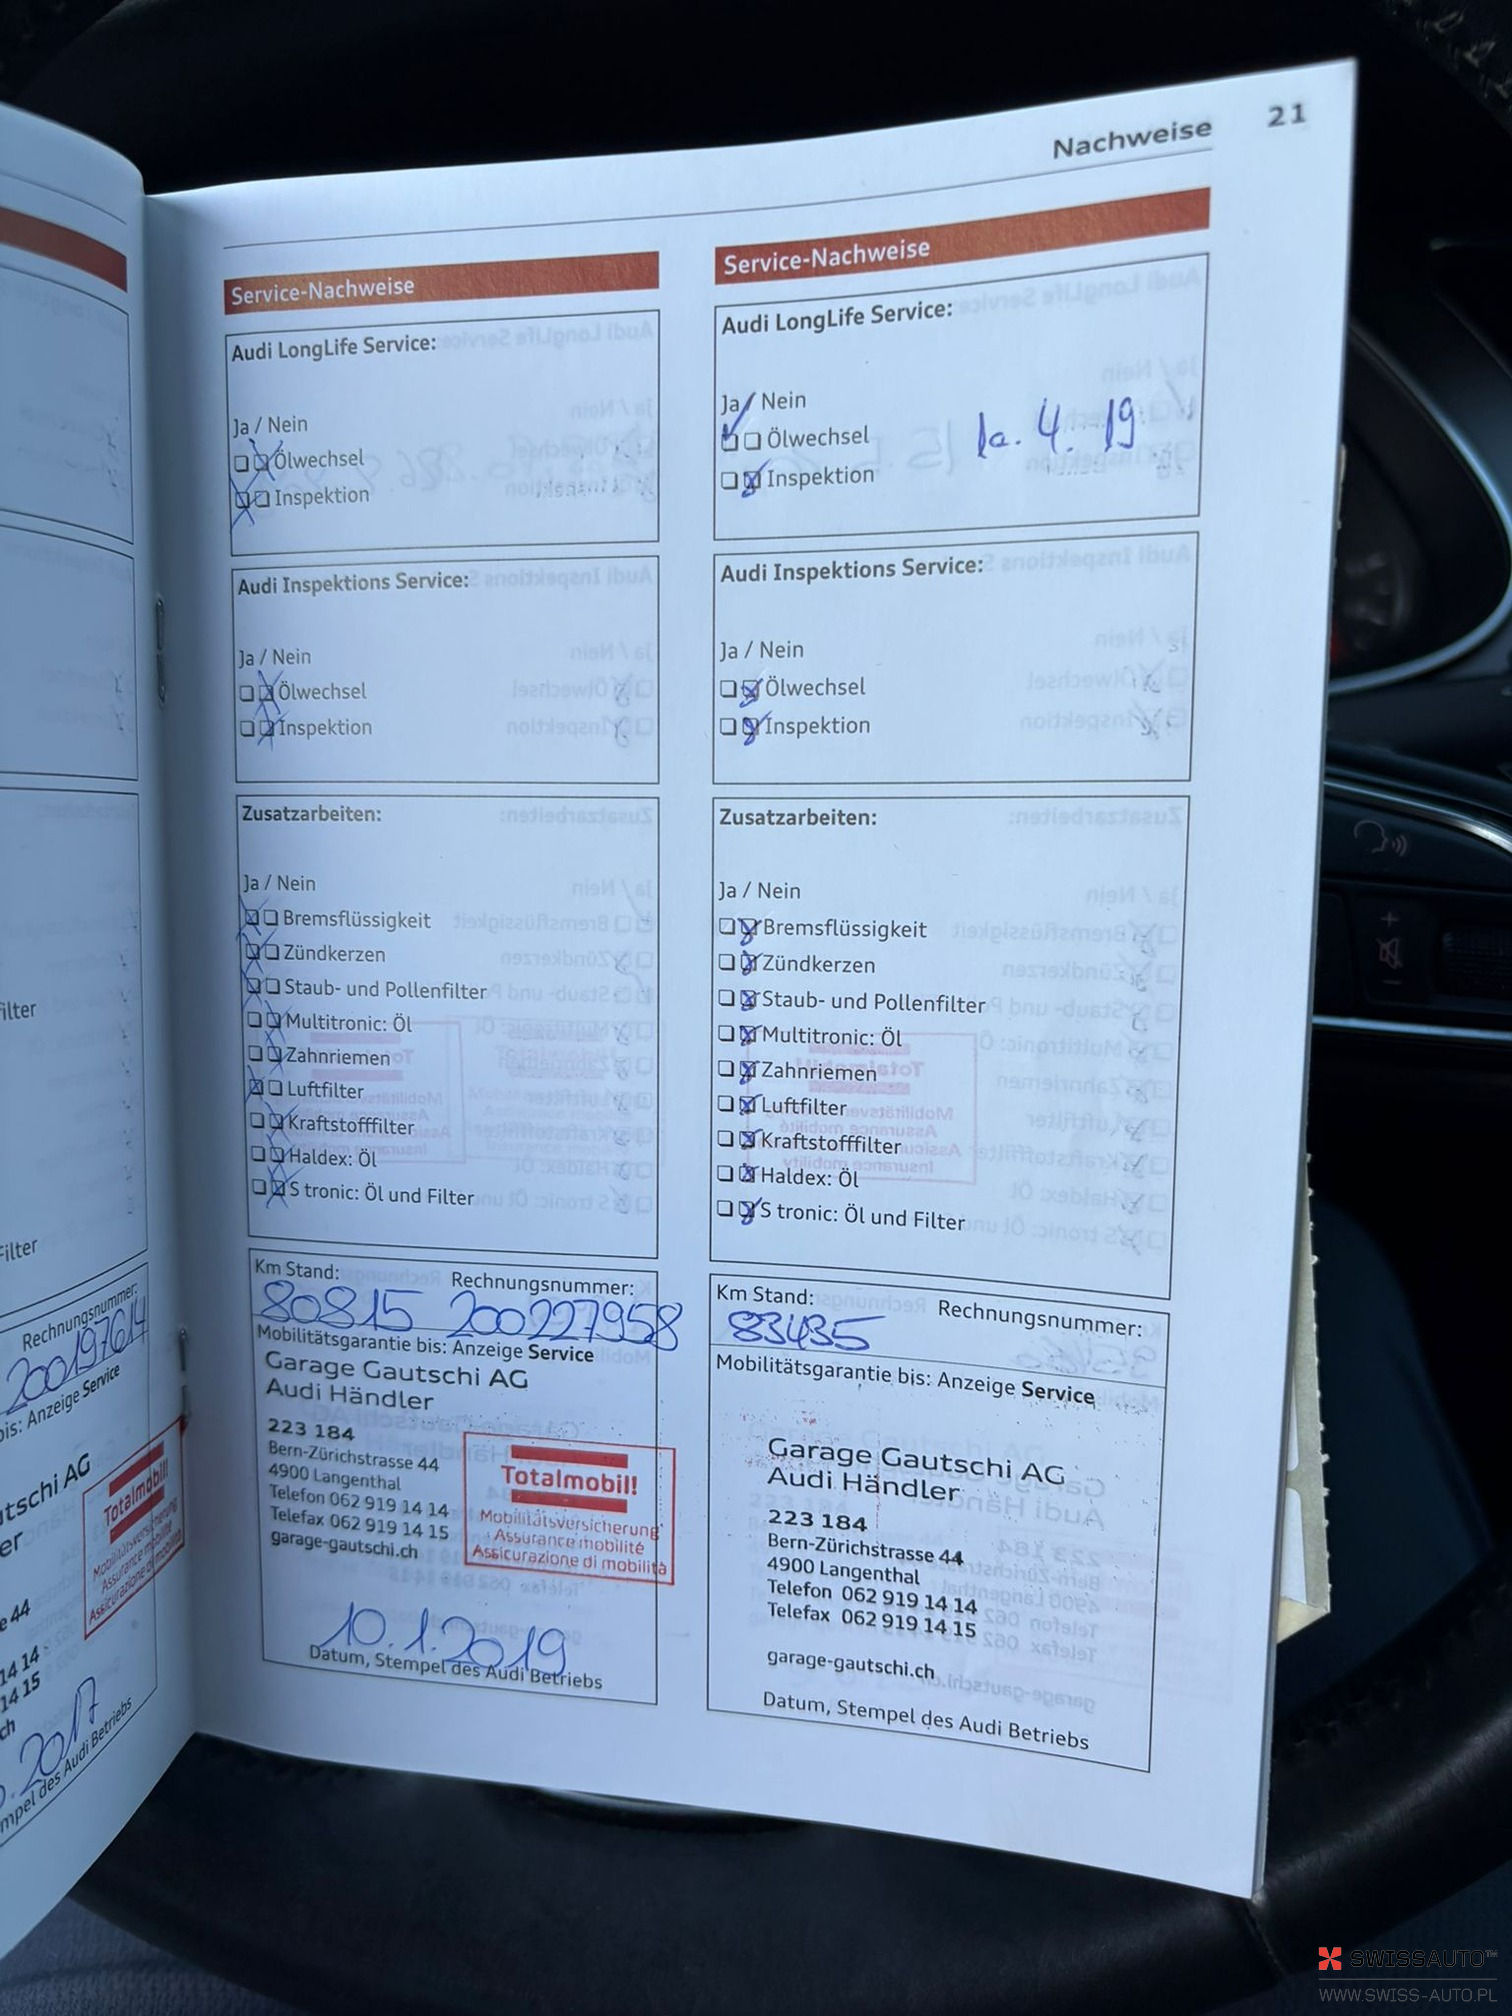 Nachweise 21
Service-Nachweise
Audi LongLife Service:
Ja / Nein
Ölwechsel
Inspektion
Audi Inspektions Service:
Ja / Nein
Ölwechsel
Inspektion
Zusatzarbeiten:
Ja / Nein
Bremsflüssigkeit
Zündkerzen
Staub- und Pollenfilter
Multitronic: Öl
Zahnriemen
Luftfilter
Kraftstofffilter
Haldex: Öl
S tronic: Öl und Filter
Km Stand: Rechnungsnummer:
80815 200227958
Mobilitätsgarantie bis: Anzeige Service
Garage Gautschi AG
Audi Händler
223 184
Bern-Zürichstrasse 44
4900 Langenthal
Telefon 062 919 14 14
Telefax 062 919 14 15
garage-gautschi.ch
Totalmobil!
Mobilitätsversicherung
Assurance mobilité
Assicurazione di mobilità
10.1.2019
Datum, Stempel des Audi Betriebs
Service-Nachweise
Audi LongLife Service:
Ja / Nein
Ölwechsel
4. 19
Inspektion
Audi Inspektions Service:
Ja / Nein
Ölwechsel
Inspektion
Zusatzarbeiten:
Ja / Nein
Bremsflüssigkeit
Zündkerzen
Staub- und Pollenfilter
Multitronic: Öl
Zahnriemen
Luftfilter
Kraftstofffilter
Haldex: Öl
S tronic: Öl und Filter
Km Stand: Rechnungsnummer:
83435
Mobilitätsgarantie bis: Anzeige Service
Garage Gautschi AG
Audi Händler
223 184
Bern-Zürichstrasse 44
4900 Langenthal
Telefon 062 919 14 14
Telefax 062 919 14 15
garage-gautschi.ch
Datum, Stempel des Audi Betriebs
ilter
Filter
Rechnungsnummer:
200197614
bis: Anzeige Service
tschi AG
er
Totalmobil!
Mobilitätsversicherung
Assurance mobilité
Assicurazione di mobilità
e 44
14 14
14 15
ch
.2017
mpel des Audi Betriebs
SWISSAUTO™
WWW.SWISS-AUTO.PL